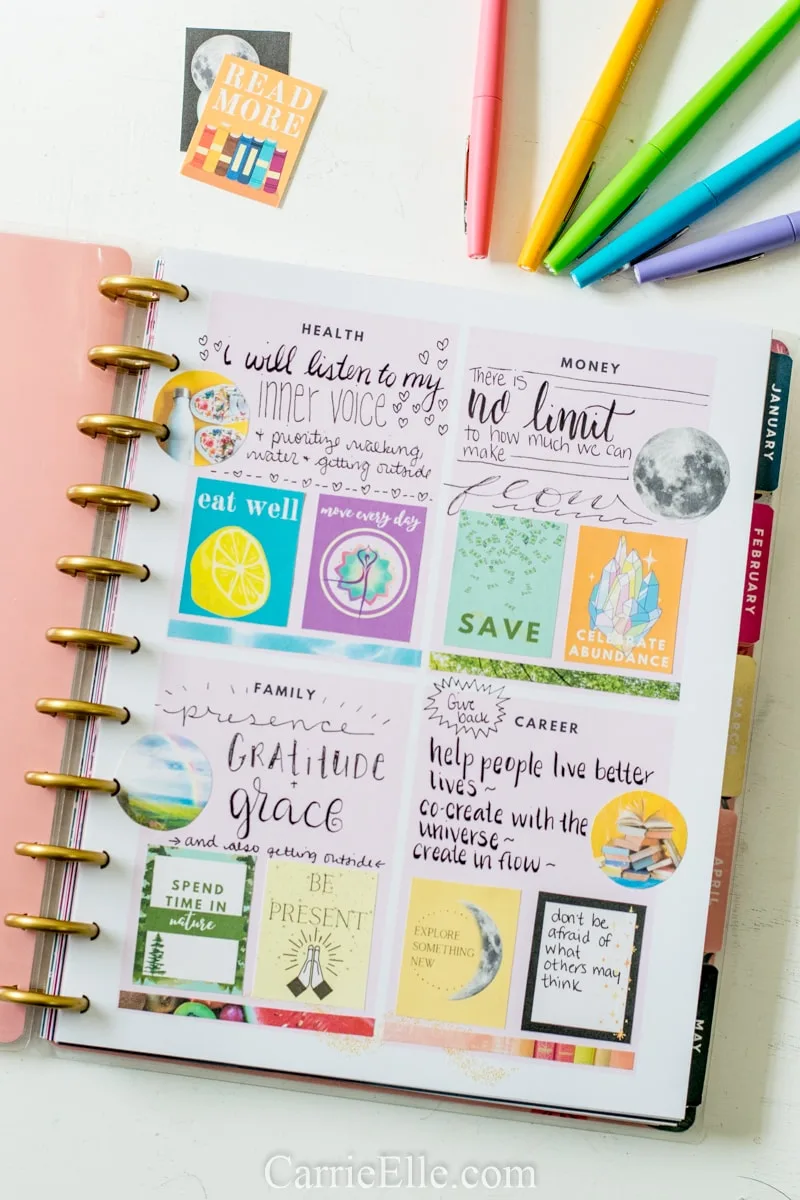 READ
MORE
HEALTH
i will listen to my
inner voice
+ prioritize walking,
water + getting outside
eat well
move every day
MONEY
There is
no limit
to how much we can
make
flow
SAVE
CELEBRATE
ABUNDANCE
FAMILY
presence
GRATITUDE
+
grace
→ and also getting outside ←
SPEND
TIME IN
nature
BE
PRESENT
Give
back
CAREER
help people live better
lives ~
co-create with the
universe ~
create in flow ~
EXPLORE
SOMETHING
NEW
don't be
afraid of
what
others may
think
JANUARY
FEBRUARY
MARCH
APRIL
MAY
CarrieElle.com